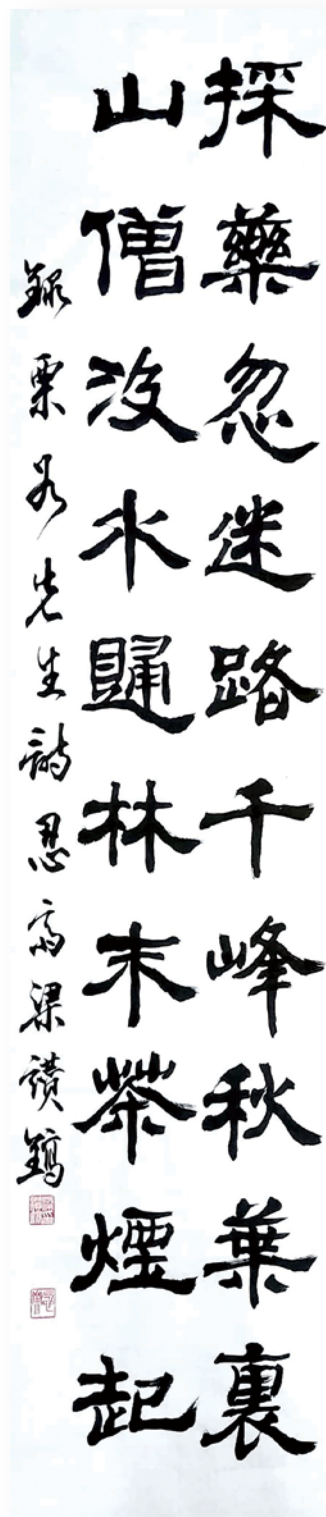 採藥忽迷路千峰秋葉裏
山僧汲水歸林末茶煙起
錄栗谷先生詩忍齋梁讚鎬